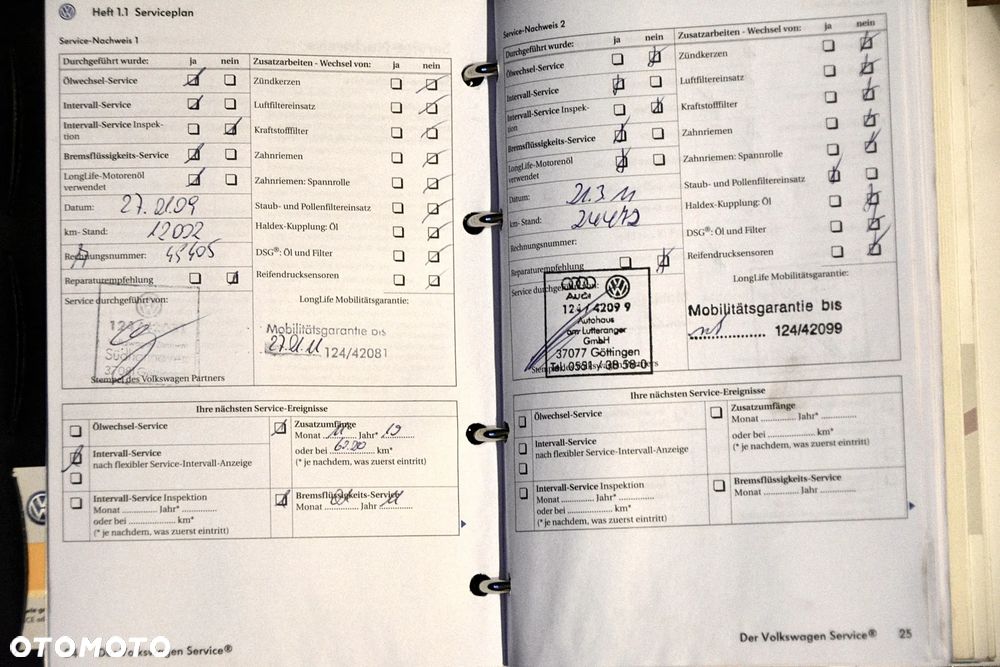 Heft 1.1 Serviceplan
Service-Nachweis 1
Durchgeführt wurde: ja nein
Ölwechsel-Service
Intervall-Service
Intervall-Service Inspek-
tion
Bremsflüssigkeits-Service
LongLife-Motorenöl
verwendet
Datum: 27.01.09
km- Stand: 12002
Rechnungsnummer: 45405
Reparaturempfehlung
Service durchgeführt von:
Stempel des Volkswagen Partners
Zusatzarbeiten - Wechsel von: ja nein
Zündkerzen
Luftfiltereinsatz
Kraftstofffilter
Zahnriemen
Zahnriemen: Spannrolle
Staub- und Pollenfiltereinsatz
Haldex-Kupplung: Öl
DSG®: Öl und Filter
Reifendrucksensoren
LongLife Mobilitätsgarantie:
Mobilitätsgarantie bis
27.01.11 124/42081
Ihre nächsten Service-Ereignisse
Ölwechsel-Service
Intervall-Service
nach flexibler Service-Intervall-Anzeige
Intervall-Service Inspektion
Monat ............ Jahr* ............
oder bei .................. km*
(* je nachdem, was zuerst eintritt)
Zusatzumfänge
Monat 11 Jahr*
oder bei km*
(* je nachdem, was zuerst eintritt)
Bremsflüssigkeits-Service
Monat 01 Jahr 11
Der Volkswagen Service®
OTOMOTO
Service-Nachweis 2
Durchgeführt wurde: ja nein
Ölwechsel-Service
Intervall-Service
Intervall-Service Inspek-
tion
Bremsflüssigkeits-Service
LongLife-Motorenöl
verwendet
Datum: 21.3.11
km- Stand: 24472
Rechnungsnummer:
Reparaturempfehlung
Service durchgeführt von:
Audi
124 / 4209 9
Autohaus
am Lutteranger
GmbH
37077 Göttingen
Tel. 0551 / 38 58-0
Zusatzarbeiten - Wechsel von: ja nein
Zündkerzen
Luftfiltereinsatz
Kraftstofffilter
Zahnriemen
Zahnriemen: Spannrolle
Staub- und Pollenfiltereinsatz
Haldex-Kupplung: Öl
DSG®: Öl und Filter
Reifendrucksensoren
LongLife Mobilitätsgarantie:
Mobilitätsgarantie bis
................. 124/42099
Ihre nächsten Service-Ereignisse
Ölwechsel-Service
Intervall-Service
nach flexibler Service-Intervall-Anzeige
Intervall-Service Inspektion
Monat ............ Jahr* ............
oder bei .................. km*
(* je nachdem, was zuerst eintritt)
Zusatzumfänge
Monat ............ Jahr* ............
oder bei .................. km*
(* je nachdem, was zuerst eintritt)
Bremsflüssigkeits-Service
Monat ............ Jahr ............
Der Volkswagen Service® 25